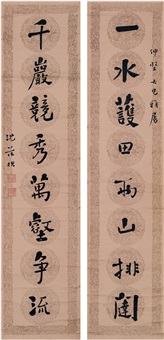 仲堅大兄雅屬
一水護田兩山排闥
千巖競秀萬壑爭流